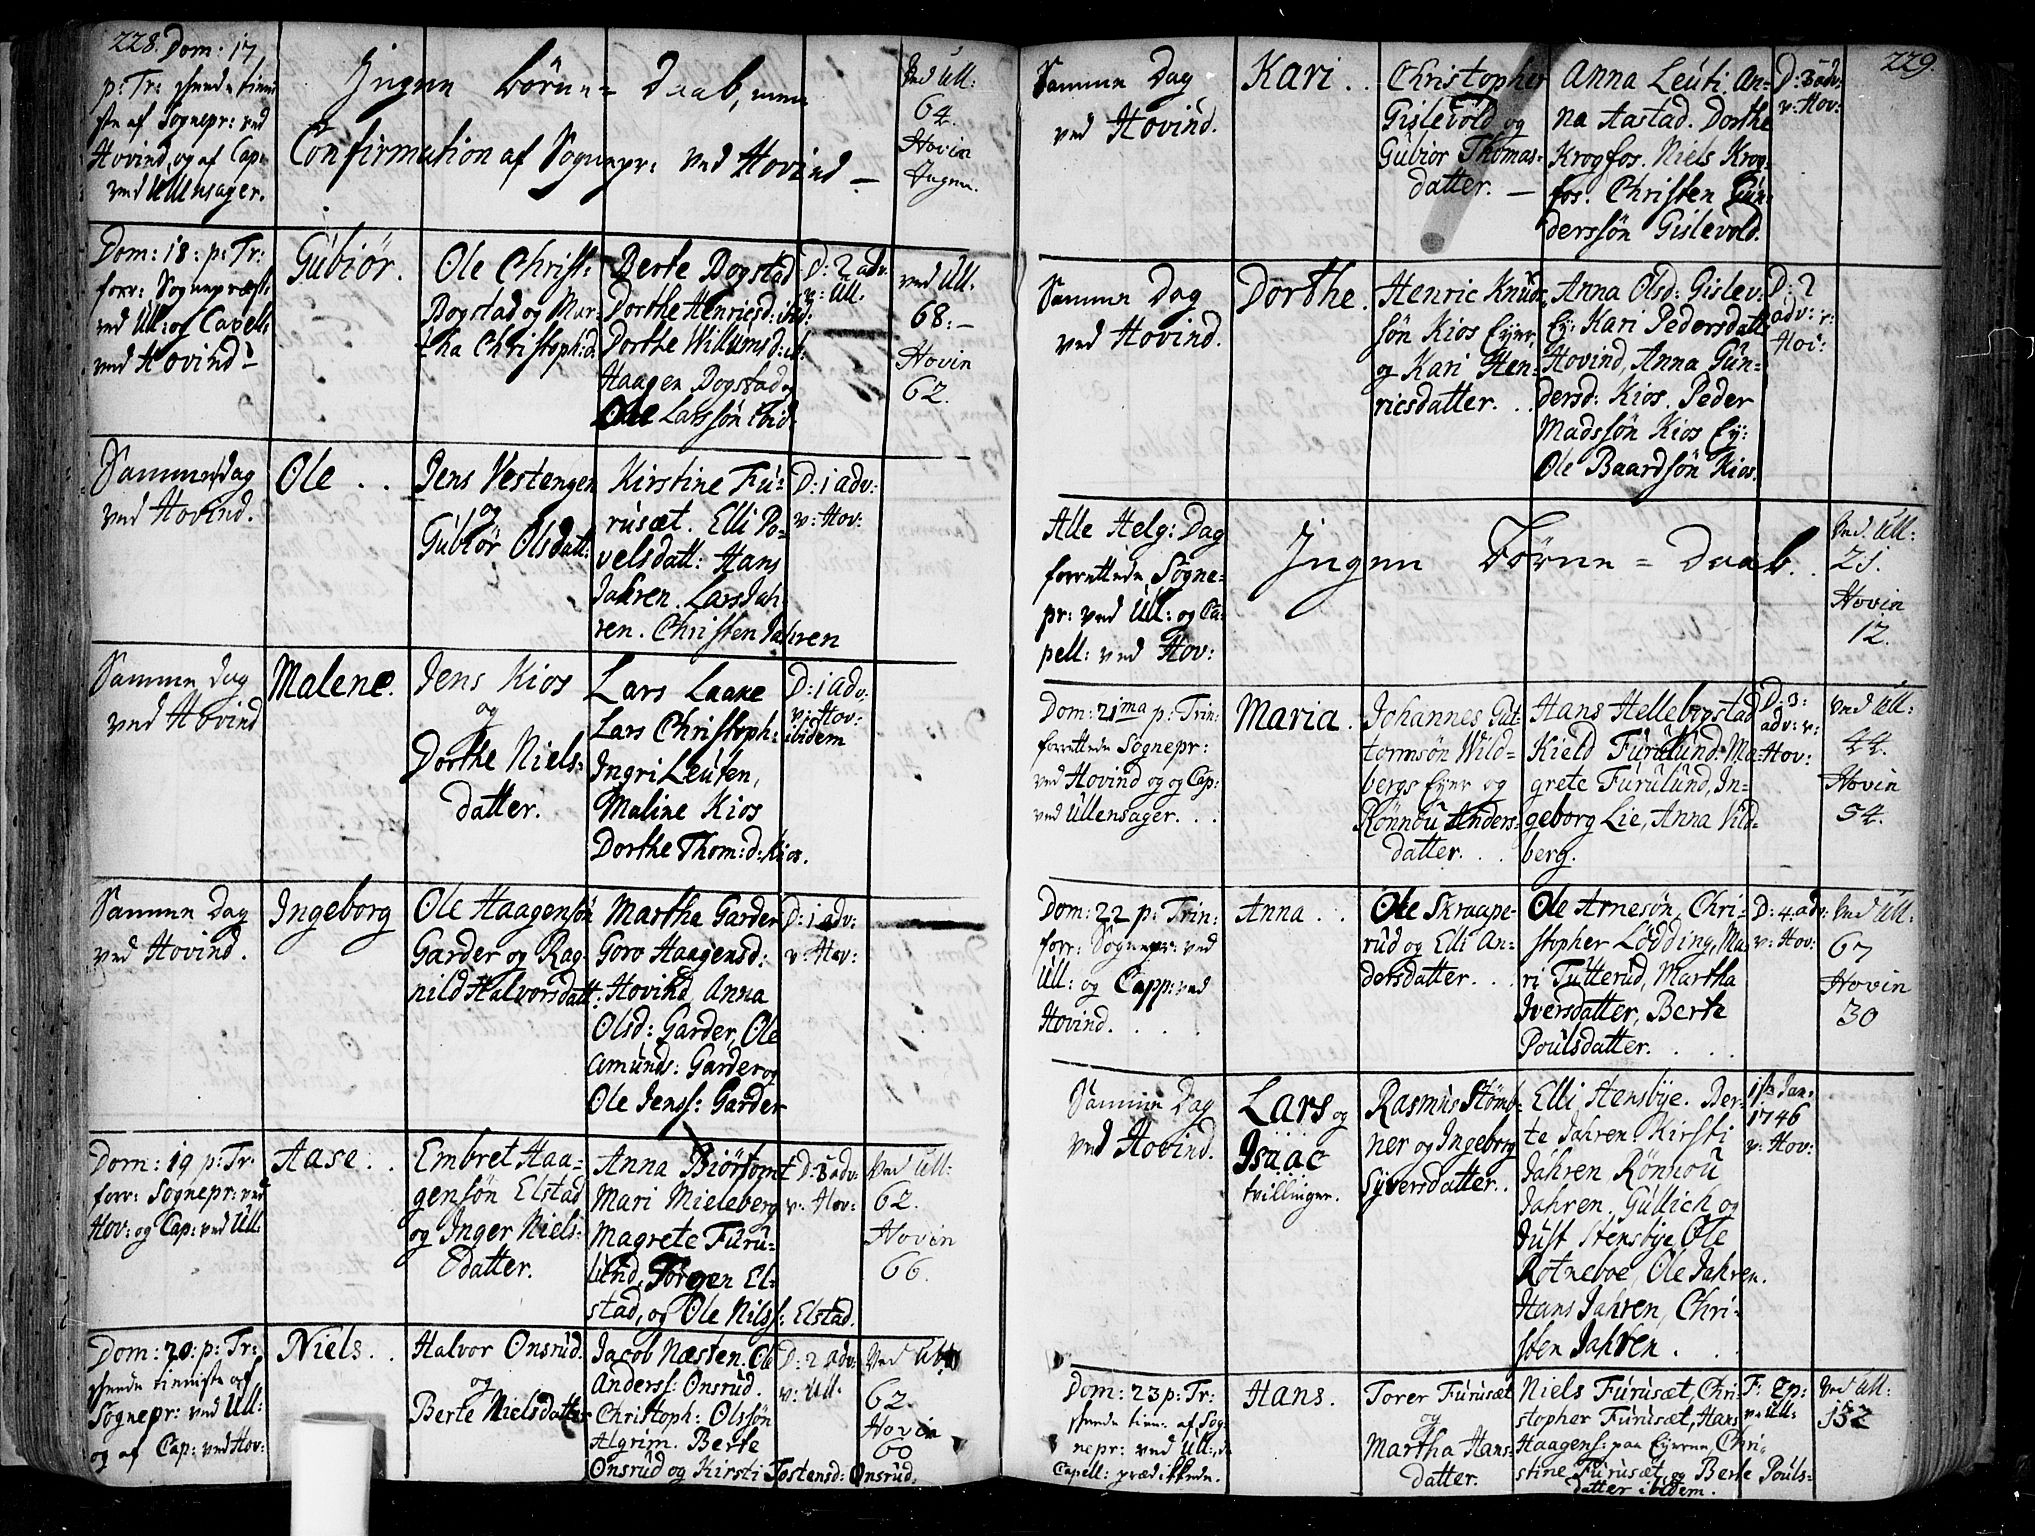 228. Dom. 17
p: Tr: skeede tieni-
ste af Sognepr: ved
Hovind, og af Cap:
ved Ullensager.
Ingen Börne = Daab, men
Confirmation af Sognepr: ved Hovind —
Ved Ull:
64.
Hovin
Ingen.
Dom: 18: p: Tr:
forr: Sognepræst:
ved Ull: og Capell:
ved Hovind
Gubiör.
Ole Christ:
Dogstad og Mar-
tha Christoph:d:
Berte Dogstad
Dorthe Henricsd: ibid:
Dorthe Willumsd: ib:
Haagen Dogstad og
Ole Larssön ibid.
D: 2 adv:
v: Ull.
ved Ull.
68: —
Hovin
62.
Samme dag
ved Hovind.
Ole . .
Jens Vestengen
og
Gubiör Olsdatt:
Kirstine Fu-
rusæt. Elli Po-
velsdatt: Hans
Jahren. Lars Jah-
ren. Christen Jahren
D: 1 adv:
v: Hov:
Samme dag
ved Hovind
Malene.
Jens Kios
og
Dorthe Niels-
datter.
Lars Laane
Lars Christoph:
Ingri Leuten,
Maline Kios
Dorthe Thom:d: Kios.
D: 1 adv:
v: Hov:
ibidem
Samme Dag
ved Hovind.
Ingeborg
Ole Haagensön
Garder og Rag-
nild Halvorsdatt:
Martha Garder
Goro Haagensd:
Hovind, Anna
Olsd: Garder, Ole
Amunds: Garder og
Ole Jenss: Garder
D: 1 adv:
v: Hov:
Dom: 19 p: Tr:
forr: Sognepr: ved
Hov: og Cap: ved Ull:
Aase . .
Embret Haa-
gensön Elstad
og Inger Niels-
datter.
Anna Biörtomt
Mari Mieleberg
Magrete Furu-
lund, Torgen El-
stad, og Ole Nilss: Elstad.
D: 3 adv:
v: Hov:
Ved Ull:
62.
Hovin
66.
Dom: 20: p: Tr:
skeede tieniste af
Sognepr: ved Ull:
og af Cap: ved Hov:
Niels . .
Halvor Onsrud.
og
Berte Nielsdatter
Jacob Næsten. Ole
Anderss: Onsrud.
Christoph: Olssön
Algrim. Berte
Onsrud og Kirsti Tostensd: Onsrud.
D: 2 adv:
v: Ull:
Ved Ull:
62.
Hovin
60
229.
Samme Dag
ved Hovind.
Kari . .
Christopher
Gislevold og
Gubior Thomas-
datter. —
Anna Leuti. An-
na Aastad. Dorthe
Krogfos. Niels Krog-
fos. Christen Gun-
derssön Gislevold.
D: 3 adv:
v: Hov:
Samme Dag
ved Hovind.
Dorthe.
Henric Knud-
sön Kios Eyer,
og Kari Hen-
ricsdatter. . .
Anna Olsd: Gislev:
Ey: Kari Pedersdatt:
Hovind, Anna Gun-
dersd: Kios. Peder
Madssön Kios Ey:
Ole Baardsön Kios.
D: 2
adv: v:
Hov:
Alle Helg: Dag
forrettede Sogne-
pr: ved Ull: og Ca-
pell: ved Hov:
Ingen Börne = Daab. .
Ved Ull:
21.
Hovin
12.
Dom: 21ma p: Trin:
forrettede Sognepr:
ved Hovind og og Cap:
ved Ullensager. . .
Maria.
Johannes Gut-
tormsön Wild-
bergs Eyer og
Rönnou Anders-
datter. . .
Hans Hellebogstad
Kield Furulund. Ma-
grete Furulund, In-
geborg Lie, Anna Vild-
berg.
D: 3:
adv: v:
Hov:
Ved Ull:
44.
Hovin
54.
Dom: 22 p: Trin:
forr: Sognepr: ved
Ull: og Capp: ved
Hovind. . .
Anna . .
Ole Skraape-
rud og Elli An-
dersdatter. . .
Ole Arnesön, Chri-
stopher Lödding, Ma-
ri Tutterud, Martha
Iversdatter, Berte
Poulsdatter. . .
D: 4. adv:
v: Hov:
Ved Ull:
67
Hovin
30
Samme Dag
ved Hovind.
Lars og
Isaac
tvillinger.
Rasmus Stömb-
ner og Ingeborg
Syversdatter. .
Elli Stensbye. Ber-
te Jahren. Kirsti
Jahren Rönnou
Jahren. Gullich og
Just Stensbye, Ole
Rotneboe, Ole Jahren.
Hans Jahren, Chri-
sten Jahren . .
1ste Jan:
1746
v: Hov:
Dom: 23 p: Tr:
skeede tien: af Sog-
nepr: ved Ull:
Capell: prædikkede.
Hans.
Torer Furusæt
og
Martha Hans-
datter.
Niels Furusæt, Chri-
stopher Furusæt, Hans
Haagens: paa Eyerne, Chri-
stine Furusæt, og Berte Pouls-
datter ibidem.
F: Ep:
v: Ull:
Ved Ull:
152